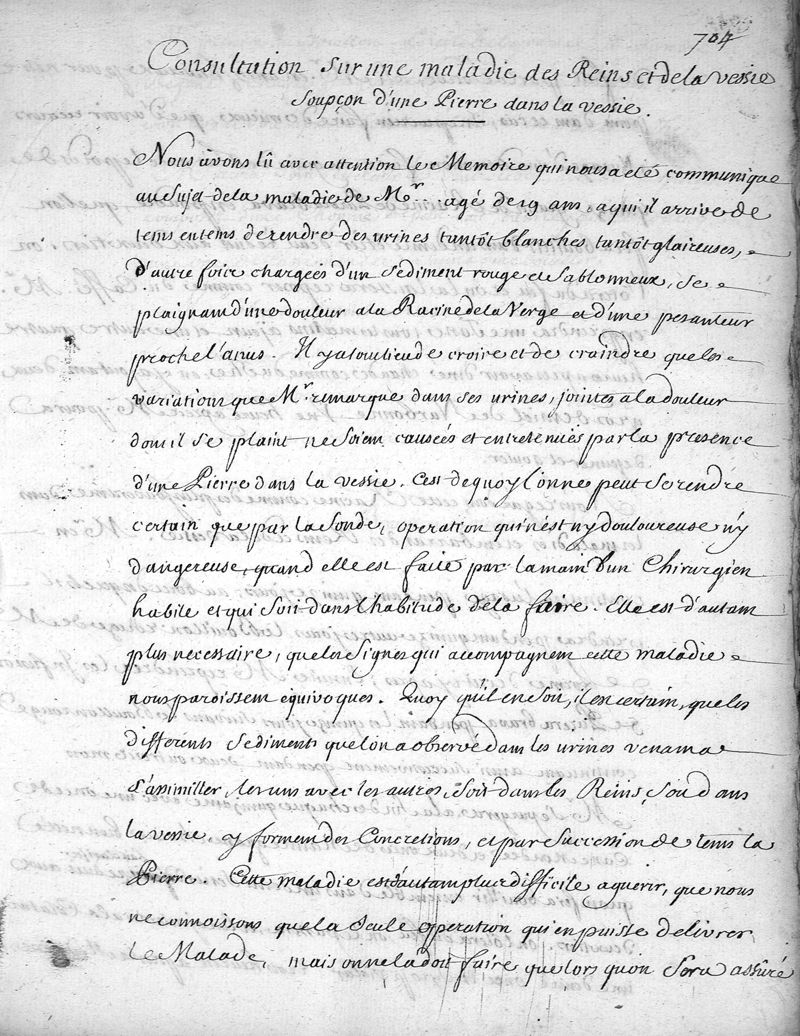 704
Consultation sur une maladie des Reins et de la vessie
Soupçon d'une Pierre dans la vessie.
Nous avons lû avec attention le Memoire qui nous a eté communiqué
au Sujet de la maladie de Mr. . agé de 19 ans. a qui il arrive de
tems en tems de rendre des urines tantôt blanches tantôt glaireuses,
D'autre foire chargées d'un sediment rouge et sablonneux, se
plaignant d'une douleur a la Racine de la Verge et d'une pesanteur
proche l'anus. Il y a tout lieu de croire et de craindre que les
variations que Mr. remarque dans ses urines, jointes a la douleur
dont il se plaint ne soient causées et entretenuës par la presence
d'une Pierre dans la vessie. C'est de quoy l'on ne peut se rendre
certain que par la sonde, operation qui n'est n'y douloureuse n'y
dangereuse, quand elle est faite par la main d'un Chirurgien
habile et qui soit dans l'habitude de la faire. Elle est d'autant
plus necessaire, que les signes qui accompagnent cette maladie
nous paroissent equivoques. Quoy qu'il en soit, il en certain, que les
differents sediments que l'on a observé dans les urines venant a
s'assimiller les uns avec les autres, soit dans les Reins, soit dans
la vessie, y forment des Concretions, et par succession de tems la
Pierre. Cette maladie est d'autant plus difficile a guerir, que nous
ne connoissons que la seule operation qui en puisse delivrer
le Malade, mais on ne la doit faire que lors qu'on sera assûré